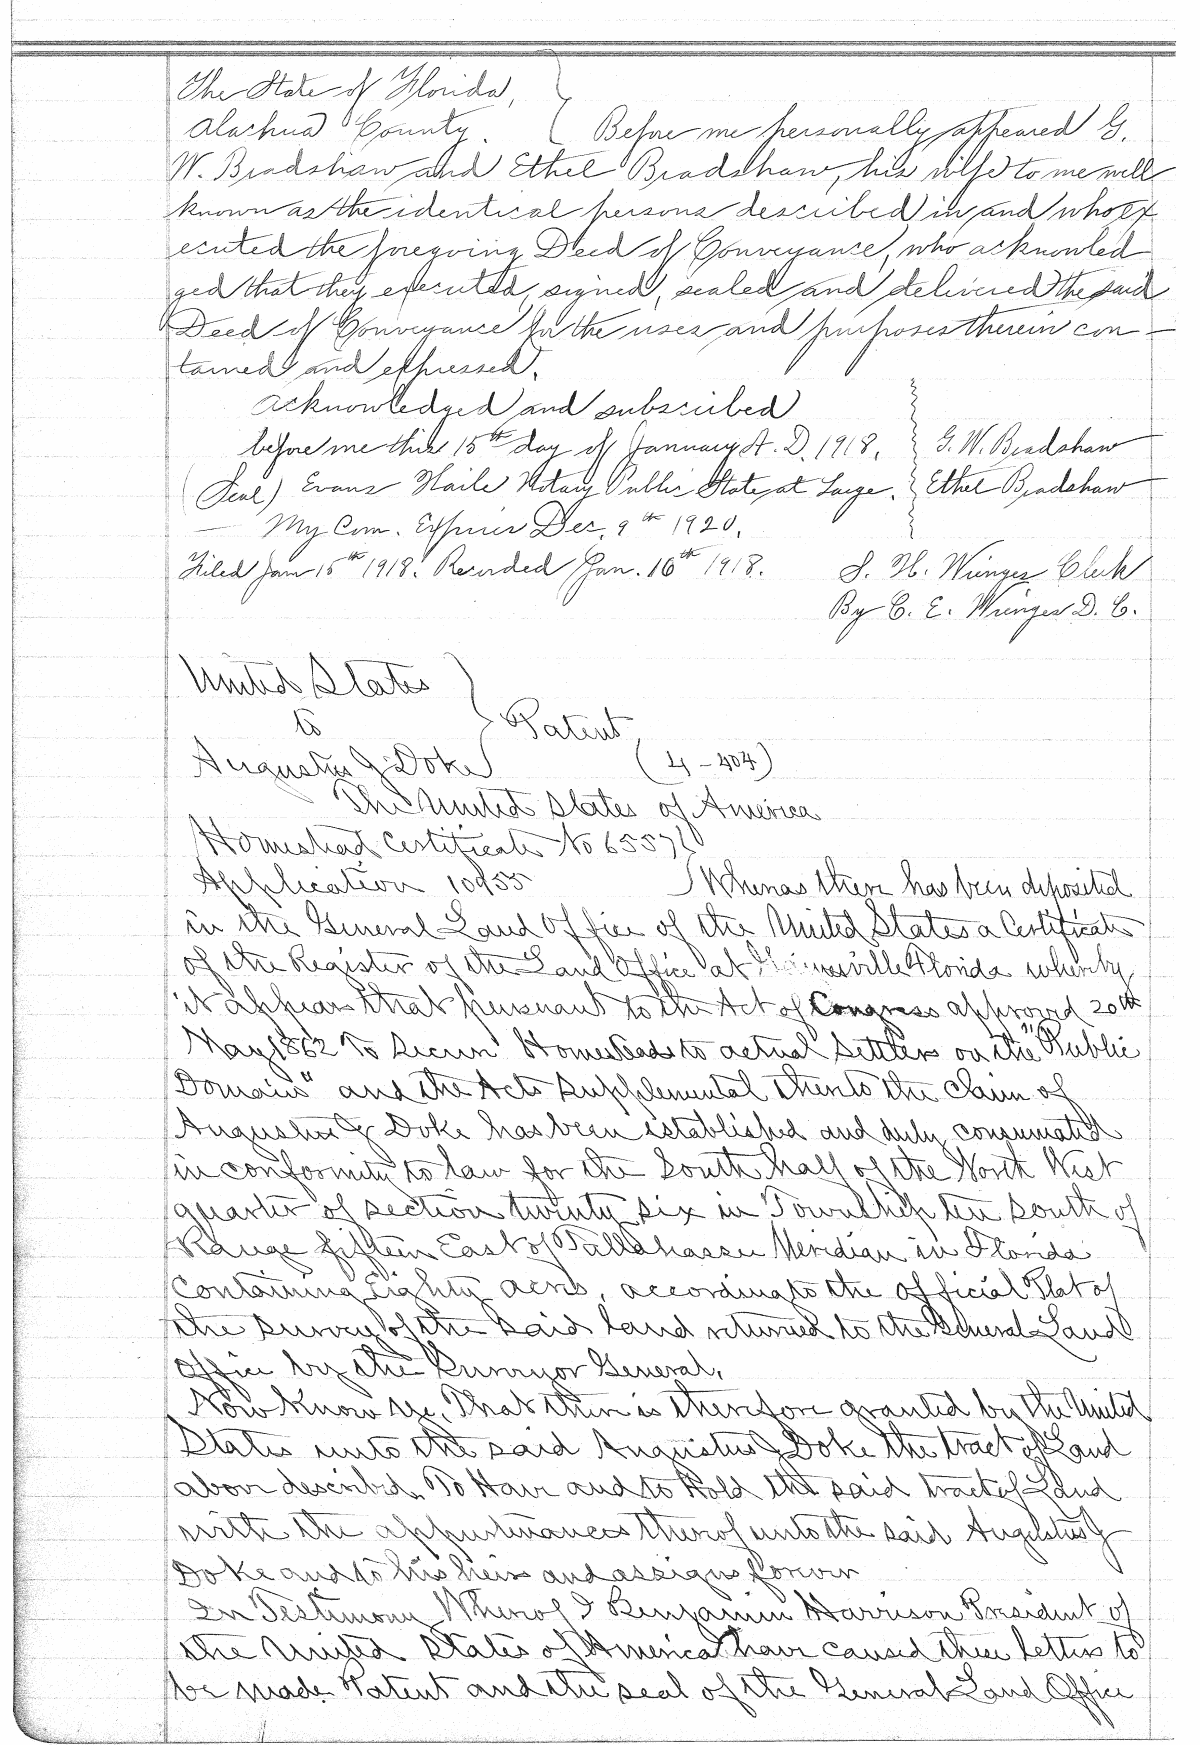 The State of Florida,
Alachua County. Before me personally appeared G.
W. Bradshaw and Ethel Bradshaw, his wife to me well
known as the identical persons described in and who ex
ecuted the foregoing Deed of Conveyance, who acknowled
ged that they executed, signed, sealed and delivered the said
Deed of Conveyance for the uses and purposes therein con-
tained and expressed.
Acknowledged and subscribed
before me this 15th day of January A. D. 1918. G. W. Bradshaw
(Seal) Evans Haile Notary Public State at Large. Ethel Bradshaw
My Com. Expires Dec. 9th 1920.
Filed Jan 15th 1918. Recorded Jan. 16th 1918. S. H. Wienges Clerk
By C. E. Wienges D. C.
United States
to Patent
Augustus J Doke (4-404)
The United States of America
Homestead Certificate No 6557
Application 10955 Whereas there has been deposited
in the General Land Office of the United States a Certificate
of the Register of the Land Office at Gainesville Florida whereby
it appears that pursuant to the Act of Congress approved 20th
May 1862 To Secure Homesteads to actual Settlers on the "Public
Domain" and the Acts Supplemental thereto the claim of
Augustus J Doke has been established and duly consumated
in conformity to law for the South half of the North West
quarter of section twenty six in Township ten South of
Range fifteen East of Tallahassee Meridian in Florida
containing Eighty acres, according to the Official Plat of
the Survey of the Said land returned to the General Land
Office by the Surveyor General.
Now Know Ye, That there is therefore granted by the United
States unto the said Augustus J Doke the tract of Land
above described. To Have and to Hold the said tract of Land
with the appurtenances thereof unto the said Augustus J
Doke and to his heirs and assigns forever
In Testimony Whereof I Benjamin Harrison President of
the United States of America have caused these letters to
be made Patent and the seal of the General Land Office